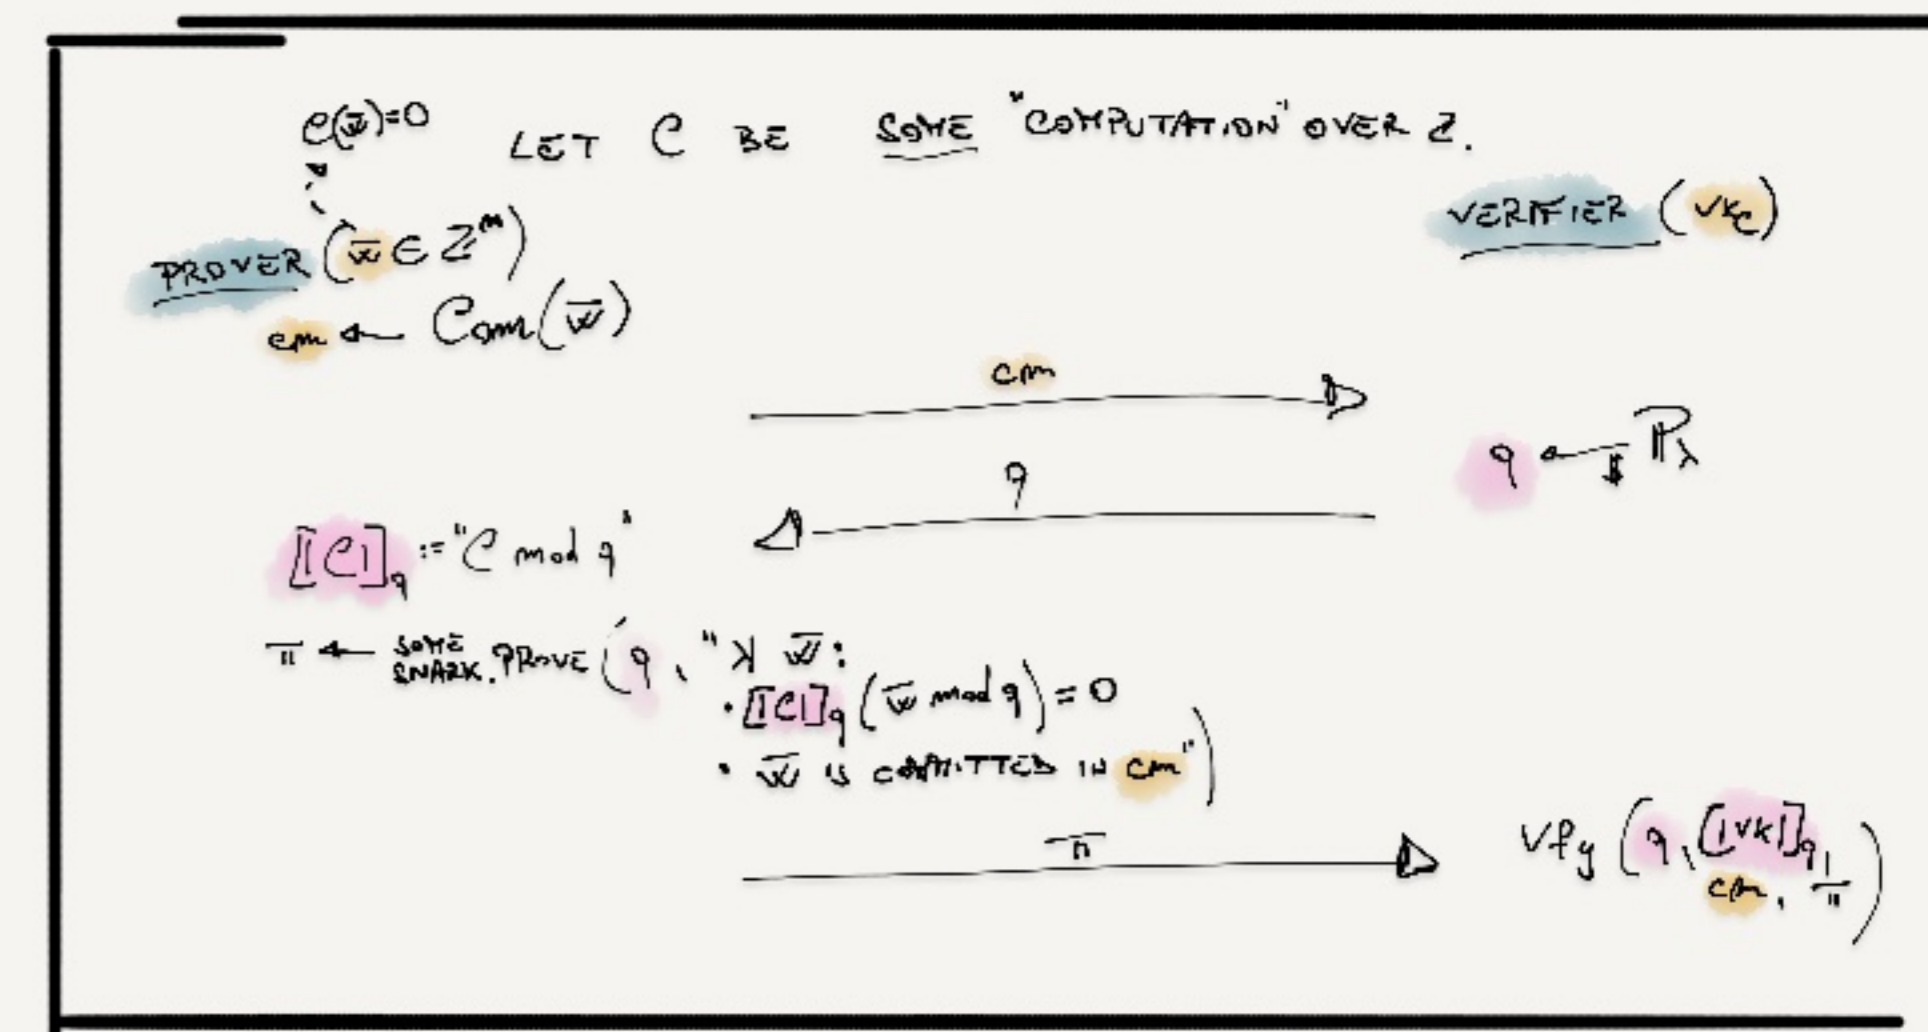 C(w̄)=0
LET C BE SOME "COMPUTATION" OVER Z.
VERIFIER (vk_C)
PROVER (w̄ ∈ Z^m)
cm ← Com(w̄)
cm
q ←$ ℙ_λ
q
⟦C⟧_q := "C mod q"
π ← SOME SNARK.PROVE (q, "∃ w̄:
· ⟦C⟧_q (w̄ mod q) = 0
· w̄ IS COMMITTED IN cm")
π
Vfy (q, ⟦vk⟧_q,
cm, π)